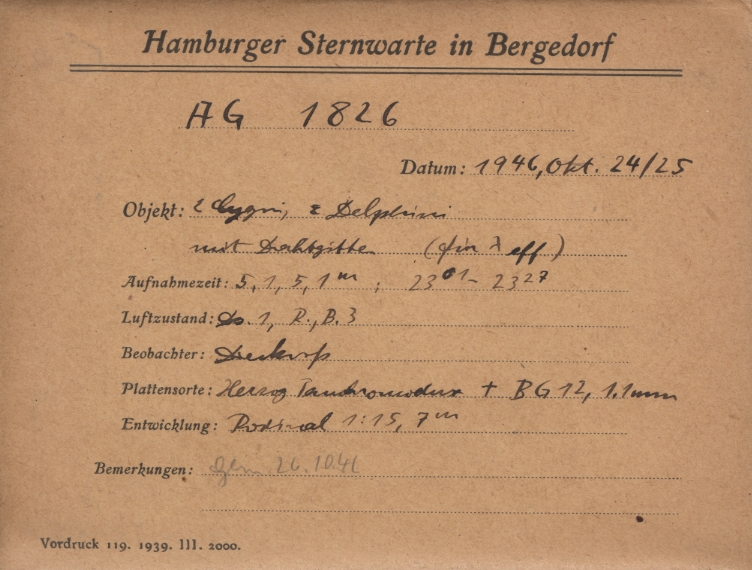 Hamburger Sternwarte in Bergedorf
AG 1826
Datum: 1946, Okt. 24/25
Objekt: ε Cygni, ε Delphini
mit Drahtgitter (für λ eff)
Aufnahmezeit: 5, 1, 5, 1 m ; 23 01 - 23 27
Luftzustand: D. 1, R., B. 3
Beobachter: Dieckvoß
Plattensorte: Herzog + BG 12, 1.1mm
Entwicklung: Rodinal 1:15, 7 m
Bemerkungen: gem 26.10.46
Vordruck 119. 1939. III. 2000.